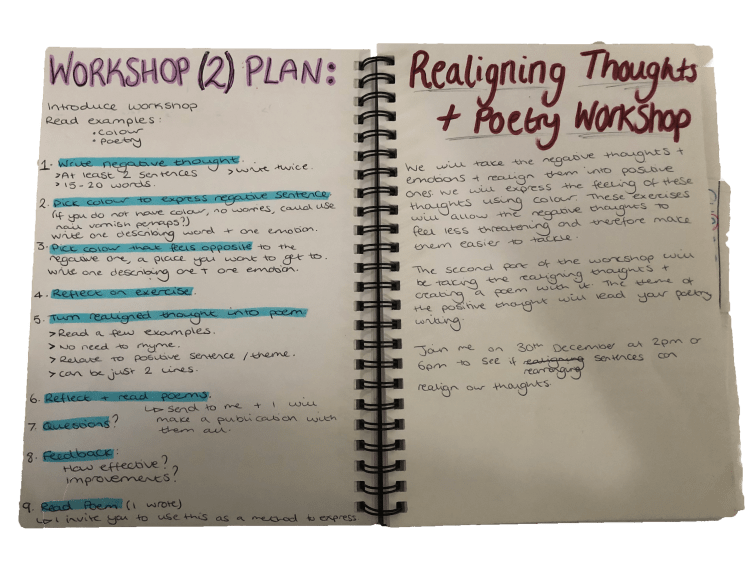 WORKSHOP (2) PLAN:
Introduce workshop
Read examples:
• Colour
• Poetry
1. Write negative thought.
> At least 2 sentences > Write twice.
> 15-20 words.
2. Pick colour to express negative sentence
(if you do not have colour, no worries, could use
nail varnish perhaps?)
Write one describing word + one emotion.
3. Pick colour that feels opposite to the
negative one, a place you want to get to.
Write one describing one + one emotion.
4. Reflect on exercise.
5. Turn realigned thought into poem
> Read a few examples.
> No need to rhyme.
> Relate to positive sentence / theme.
> can be just 2 lines.
6. Reflect + read poems.
↳ send to me + I will
make a publication with
them all.
7. Questions?
8. Feedback:
How effective?
Improvements?
9. Read Poem (I wrote)
↳ I invite you to use this as a method to express
Realigning Thoughts
+ Poetry Workshop
We will take the negative thoughts +
emotions + realign them into positive
ones. We will express the feeling of these
thoughts using colour. These exercises
will allow the negative thoughts to
feel less threatening and therefore make
them easier to tackle.
The second part of the workshop will
be taking the realigning thoughts +
creating a poem with it. The theme of
the positive thought will lead your poetry
writing.
Join me on 30th December at 2pm or
6pm to see if realigning sentences can
rearranging
realign our thoughts